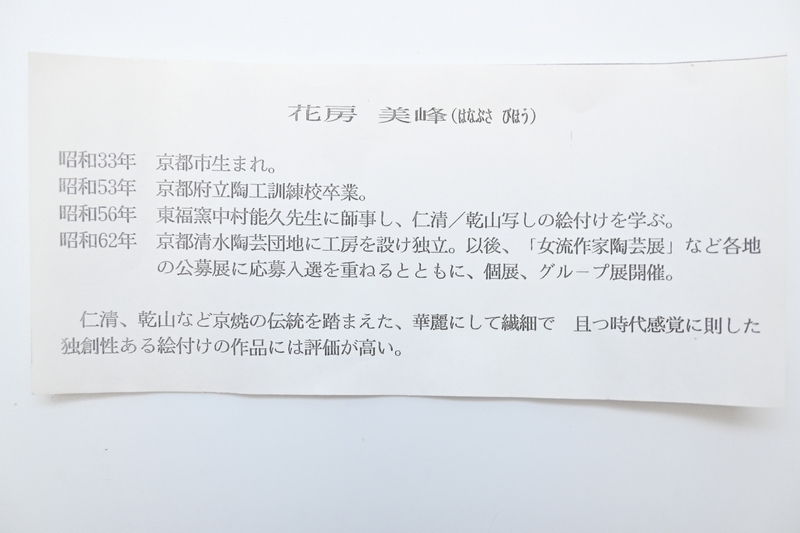 花房 美峰(はなぶさ びほう)
昭和33年 京都市生まれ。
昭和53年 京都府立陶工訓練校卒業。
昭和56年 東福窯中村能久先生に師事し、仁清／乾山写しの絵付けを学ぶ。
昭和62年 京都清水陶芸団地に工房を設け独立。以後、「女流作家陶芸展」など各地
の公募展に応募入選を重ねるとともに、個展、グループ展開催。
仁清、乾山など京焼の伝統を踏まえた、華麗にして繊細で 且つ時代感覚に則した
独創性ある絵付けの作品には評価が高い。